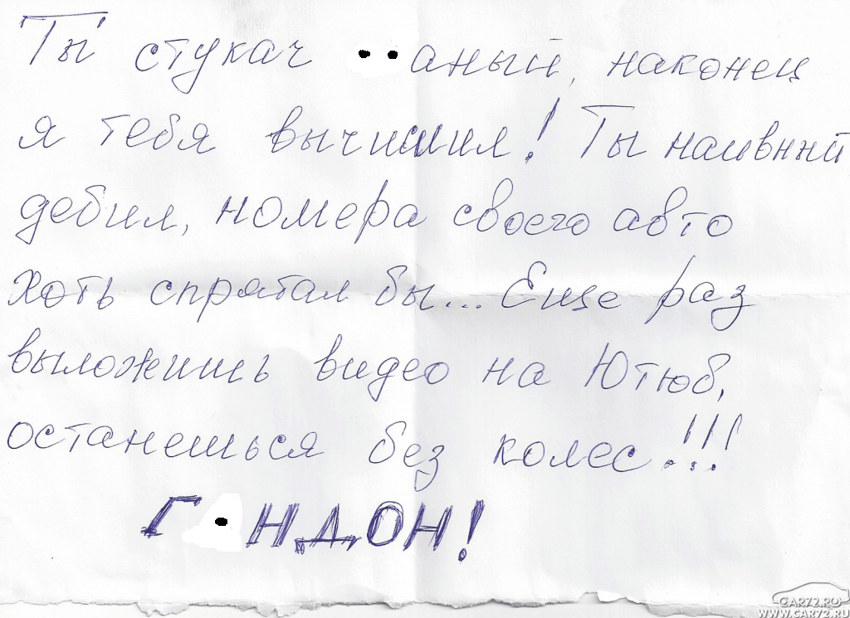 Ты стукач ••аный, наконец
я тебя вычислил! Ты наивный
дебил, номера своего авто
хоть спрятал бы... Еще раз
выложишь видео на Ютюб,
останешься без колес!!!
Г•НДОН!
CAR72.RU
WWW.CAR72.RU